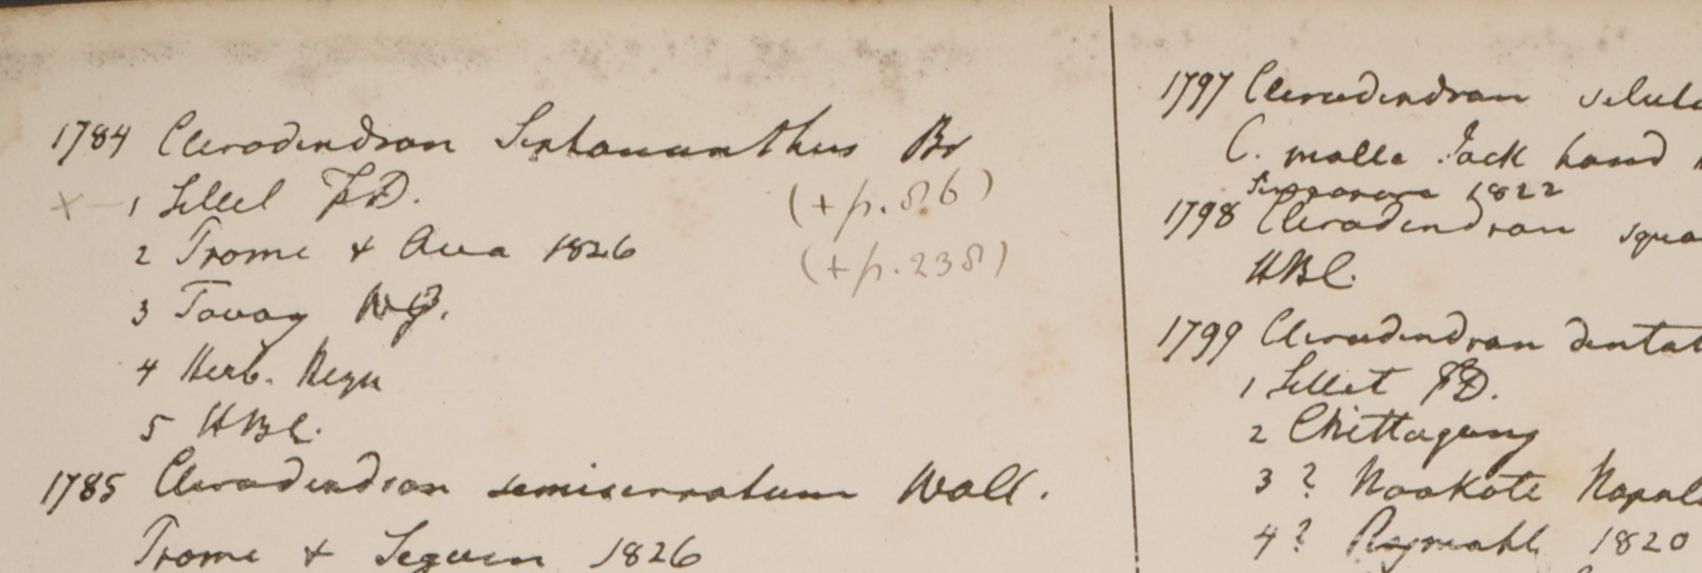 1784 Clerodendron Siphonanthus Br
× 1 Sillet FD. (+ p. 86)
2 Prome & Ava 1826 (+ p. 238)
3 Tavoy WG.
4 Herb. Heyn
5 HBC.
1785 Clerodendron semiserratum Wall.
Prome & Seguen 1826
1797 Clerodendron
C. molle Jack hand
Singapore 1822
1798 Clerodendron squa
HBC.
1799 Clerodendron dentat
1 Sillet FD.
2 Chittagong
3 ? Noakote Napal
4 ? 1820